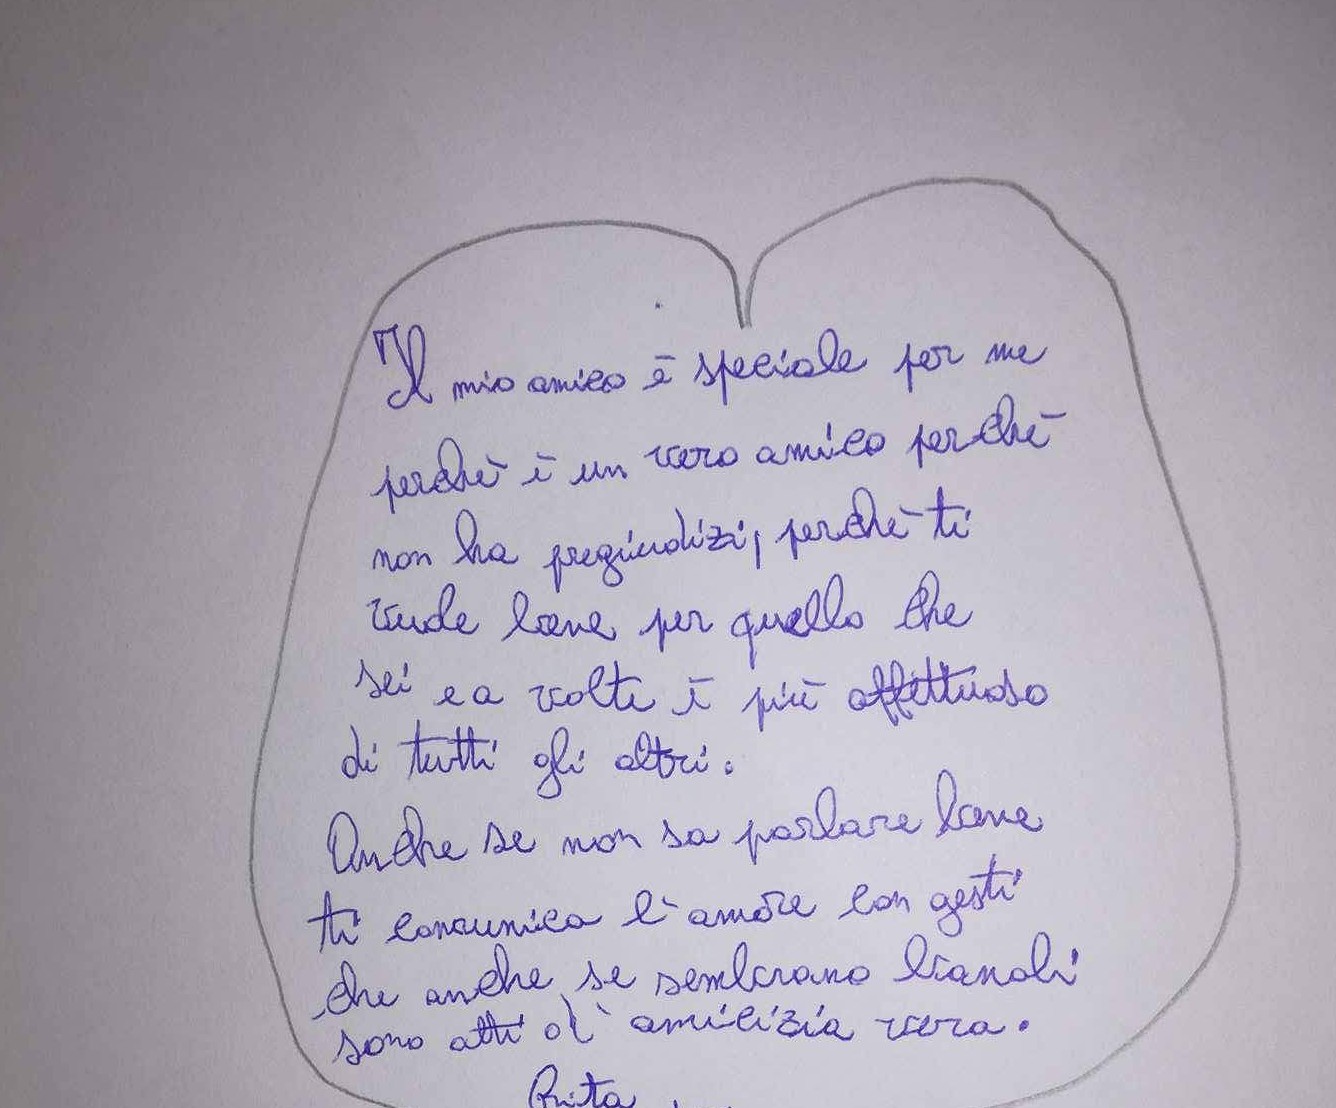 Il mio amico è speciale per me
perchè è un vero amico perchè
non ha pregiudizi, perchè ti
vuole bene per quello che
sei e a volte è più affettuoso
di tutti gli altri.
Anche se non sa parlare bene
ti comunica l'amore con gesti
che anche se sembrano banali
sono atti d'amicizia vera.